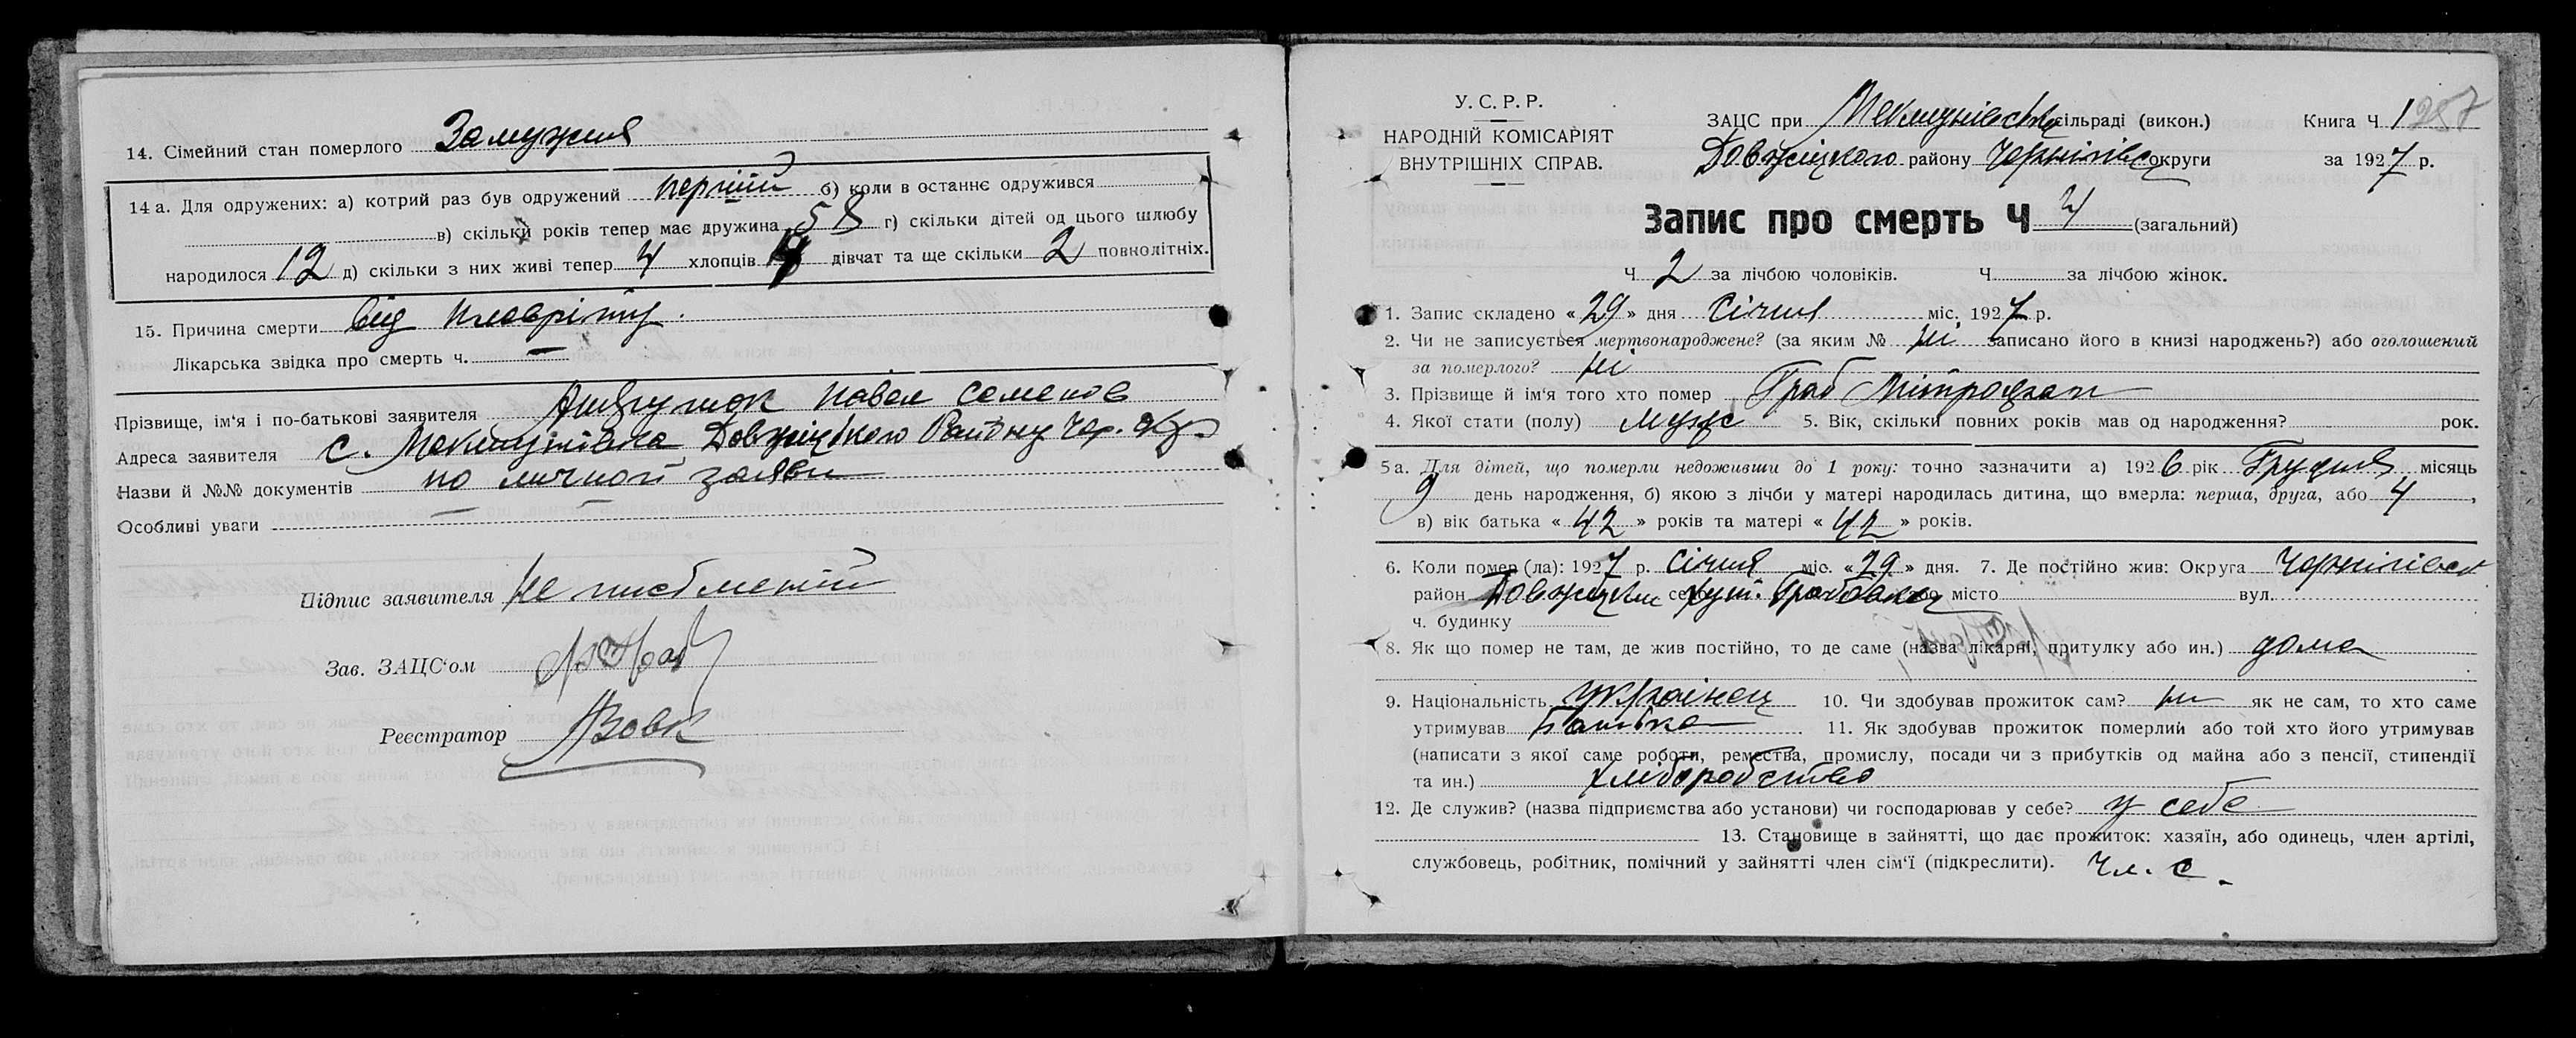 14. Сімейний стан померлого Замужня
14 а. Для одружених: а) котрий раз був одружений перший б) коли в останнє одружився
в) скільки років тепер має дружина 58 г) скільки дітей од цього шлюбу
народилося 12 д) скільки з них живі тепер 4 хлопців 4 дівчат та ще скільки 2 повнолітніх.
15. Причина смерти від плевріту.
Лікарська звідка про смерть ч. —
Прізвище, ім'я і по-батькові заявителя Павел Семенов
Адреса заявителя с. Довжицького Району Чер. Окр
Назви й №№ документів по личной заяви
Особливі уваги
Підпис заявителя Не письмений
Зав. ЗАЦС'ом
Реєстратор АВовк
У. С. Р. Р.
НАРОДНІЙ КОМІСАРІЯТ
ВНУТРІШНІХ СПРАВ.
ЗАЦС при сільраді (викон.) Книга Ч 1 257
Довжицкого району Чернігівс округи за 1927 р.
Запис про смерть Ч 4 (загальний)
Ч 2 за лічбою чоловіків. Ч за лічбою жінок.
1. Запис складено «29» дня Січня міс. 1927 р.
2. Чи не записується мертвонароджене? (за яким № ні записано його в книзі народжень?) або оголошений
за померлого? ні
3. Прізвище й ім'я того хто помер Граб Мітрофан
4. Якої стати (полу) мужс 5. Вік, скільки повних років мав од народження? рок.
5а. Для дітей, що померли недоживши до 1 року: точно зазначити а) 1926 рік Грудня місяць
9 день народження, б) якою з лічби у матері народилась дитина, що вмерла: перша, друга, або 4,
в) вік батька «42» років та матері «42» років.
6. Коли помер (ла): 1927 р. Січня міс. «29» дня. 7. Де постійно жив: Округа Чернігівск
район село хут. Грабовка або місто вул.
ч. будинку
8. Як що помер не там, де жив постійно, то де саме (назва лікарні, притулку або ин.) дома
9. Національність українец 10. Чи здобував прожиток сам? ни як не сам, то хто саме
утримував Батько 11. Як здобував прожиток померлий або той хто його утримував
(написати з якої саме роботи, ремества, промислу, посади чи з прибутків од майна або з пенсії, стипендії
та ин.) хліборобство
12. Де служив? (назва підприємства або установи) чи господарював у себе? у себе
13. Становище в зайнятті, що дає прожиток: хазяїн, або одинець, член артілі,
службовець, робітник, помічний у зайнятті член сім'ї (підкреслити). Чл. с.